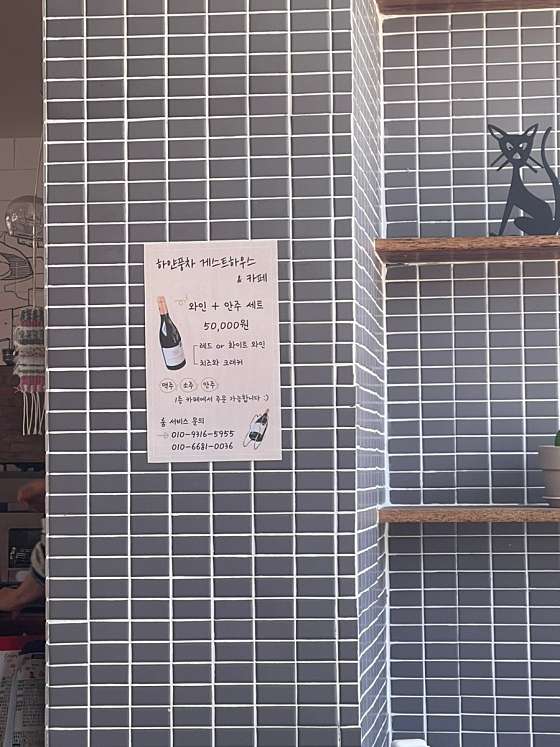 하얀풍차 게스트하우스
& 카페
와인 + 안주 세트
50,000원
레드 or 화이트 와인
치즈와 크래커
맥주 소주 안주
1층 카페에서 주문 가능합니다 :)
룸 서비스 문의
010-9316-5955
010-6681-0036